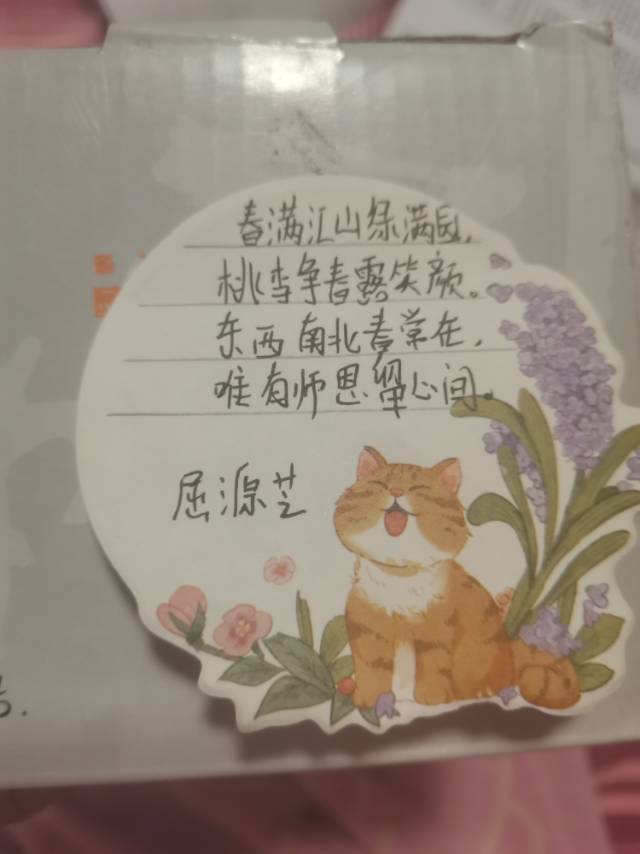 春满江山绿满园,
桃李争春露笑颜。
东西南北春常在,
唯有师恩留心间。
屈源芝